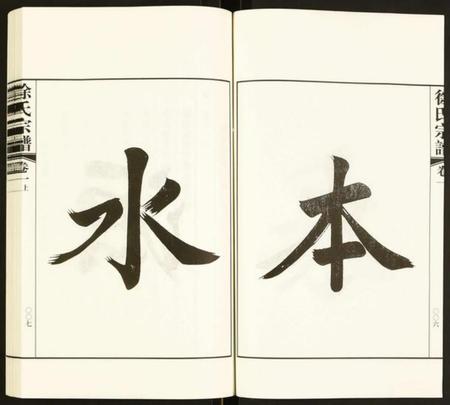 本
水
徐氏宗譜
卷
〇〇六
徐氏宗譜
卷一上
〇〇七